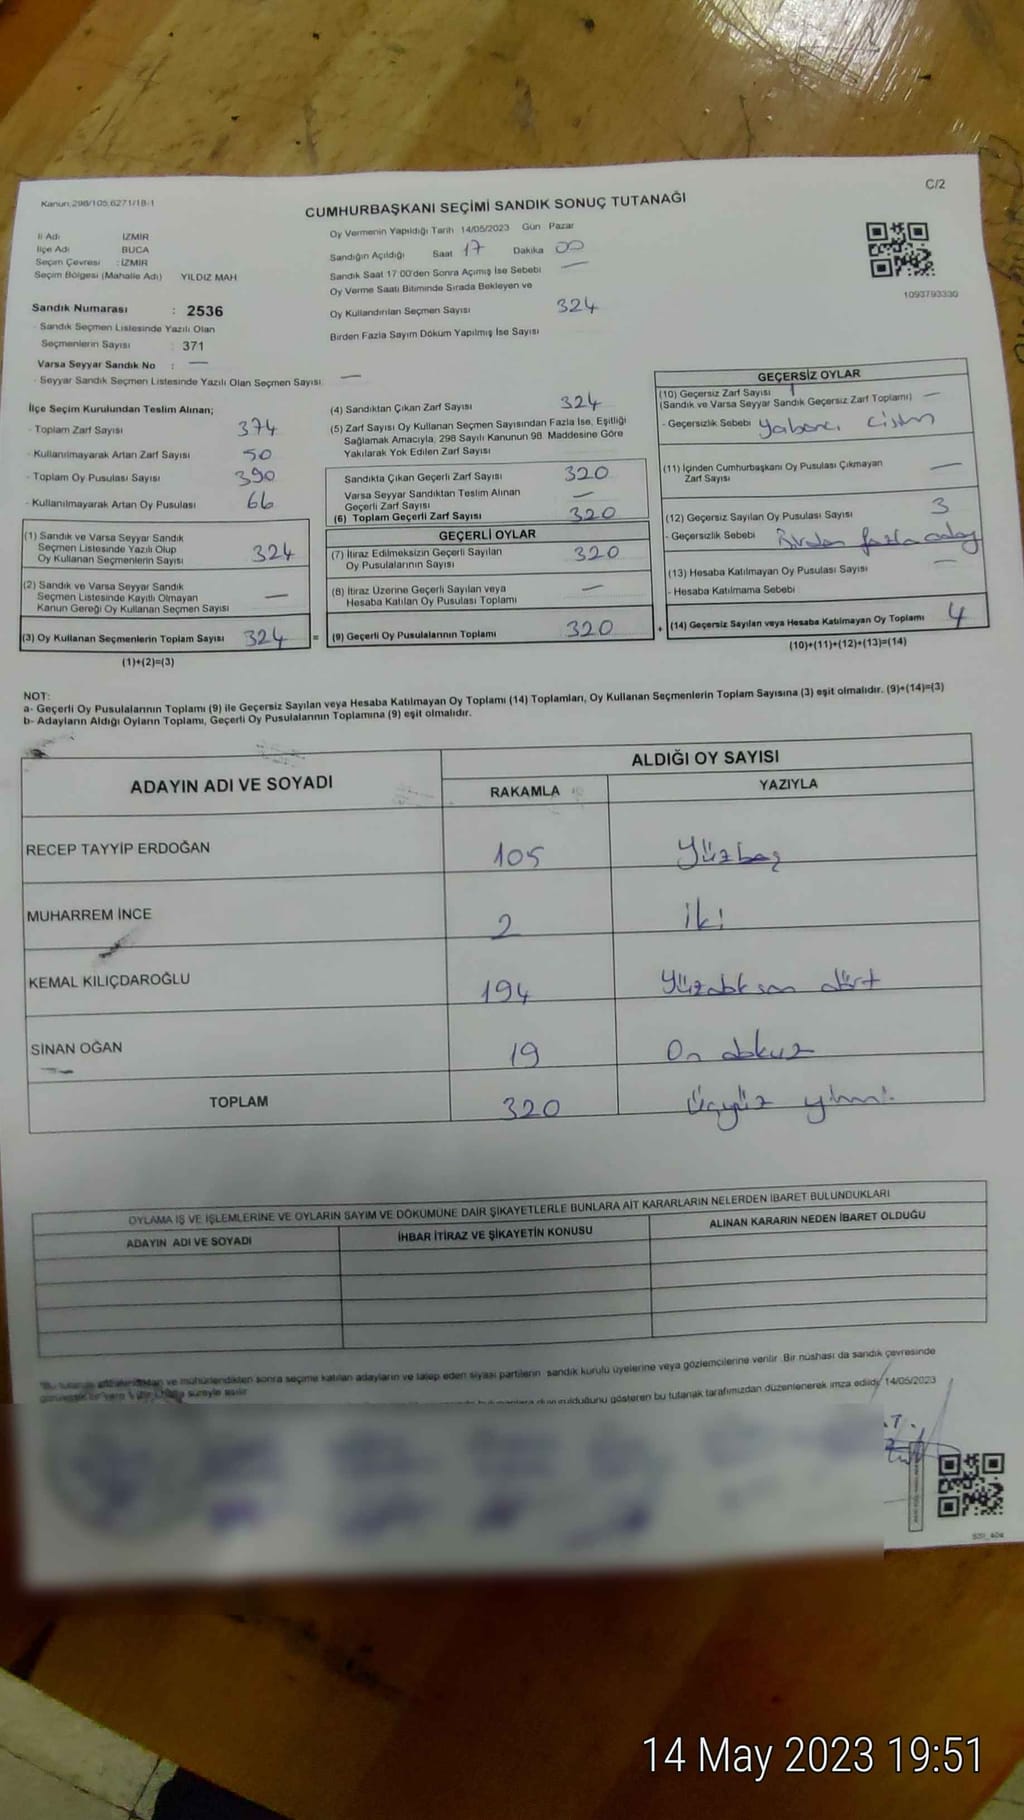 Kanun:298/105,6271/18-1
C/2
CUMHURBAŞKANI SEÇİMİ SANDIK SONUÇ TUTANAĞI
İl Adı İZMİR
İlçe Adı BUCA
Seçim Çevresi : İZMİR
Seçim Bölgesi (Mahalle Adı) YILDIZ MAH
Sandık Numarası : 2536
- Sandık Seçmen Listesinde Yazılı Olan
Seçmenlerin Sayısı : 371
Varsa Seyyar Sandık No : —
- Seyyar Sandık Seçmen Listesinde Yazılı Olan Seçmen Sayısı: —
Oy Vermenin Yapıldığı Tarih 14/05/2023 Gün Pazar
Sandığın Açıldığı Saat 17 Dakika 00
Sandık Saat 17:00'den Sonra Açılmış İse Sebebi —
Oy Verme Saati Bitiminde Sırada Bekleyen ve
Oy Kullandırılan Seçmen Sayısı 324
Birden Fazla Sayım Döküm Yapılmış İse Sayısı
1093793330
İlçe Seçim Kurulundan Teslim Alınan;
- Toplam Zarf Sayısı 374
- Kullanılmayarak Artan Zarf Sayısı 50
- Toplam Oy Pusulası Sayısı 390
- Kullanılmayarak Artan Oy Pusulası 66
(1) Sandık ve Varsa Seyyar Sandık
Seçmen Listesinde Yazılı Olup
Oy Kullanan Seçmenlerin Sayısı 324
(2) Sandık ve Varsa Seyyar Sandık
Seçmen Listesinde Kayıtlı Olmayan
Kanun Gereği Oy Kullanan Seçmen Sayısı —
(3) Oy Kullanan Seçmenlerin Toplam Sayısı 324 =
(1)+(2)=(3)
(4) Sandıktan Çıkan Zarf Sayısı 324
(5) Zarf Sayısı Oy Kullanan Seçmen Sayısından Fazla İse, Eşitliği
Sağlamak Amacıyla, 298 Sayılı Kanunun 98. Maddesine Göre
Yakılarak Yok Edilen Zarf Sayısı
Sandıkta Çıkan Geçerli Zarf Sayısı 320
Varsa Seyyar Sandıktan Teslim Alınan
Geçerli Zarf Sayısı —
(6) Toplam Geçerli Zarf Sayısı 320
GEÇERLİ OYLAR
(7) İtiraz Edilmeksizin Geçerli Sayılan
Oy Pusulalarının Sayısı 320
(8) İtiraz Üzerine Geçerli Sayılan veya
Hesaba Katılan Oy Pusulası Toplamı —
(9) Geçerli Oy Pusulalarının Toplamı 320 +
GEÇERSİZ OYLAR
(10) Geçersiz Zarf Sayısı 1
(Sandık ve Varsa Seyyar Sandık Geçersiz Zarf Toplamı) —
- Geçersizlik Sebebi Yabancı cisim
(11) İçinden Cumhurbaşkanı Oy Pusulası Çıkmayan
Zarf Sayısı —
(12) Geçersiz Sayılan Oy Pusulası Sayısı 3
- Geçersizlik Sebebi Birden fazla aday
(13) Hesaba Katılmayan Oy Pusulası Sayısı —
- Hesaba Katılmama Sebebi
(14) Geçersiz Sayılan veya Hesaba Katılmayan Oy Toplamı 4
(10)+(11)+(12)+(13)=(14)
NOT:
a- Geçerli Oy Pusulalarının Toplamı (9) ile Geçersiz Sayılan veya Hesaba Katılmayan Oy Toplamı (14) Toplamları, Oy Kullanan Seçmenlerin Toplam Sayısına (3) eşit olmalıdır. (9)+(14)=(3)
b- Adayların Aldığı Oyların Toplamı, Geçerli Oy Pusulalarının Toplamına (9) eşit olmalıdır.
ADAYIN ADI VE SOYADI
ALDIĞI OY SAYISI
RAKAMLA YAZIYLA
RECEP TAYYİP ERDOĞAN 105 Yüzbeş
MUHARREM İNCE 2 İki
KEMAL KILIÇDAROĞLU 194 Yüzdoksan dört
SİNAN OĞAN 19 On dokuz
TOPLAM 320 Üçyüz yirmi
OYLAMA İŞ VE İŞLEMLERİNE VE OYLARIN SAYIM VE DÖKÜMÜNE DAİR ŞİKAYETLERLE BUNLARA AİT KARARLARIN NELERDEN İBARET BULUNDUKLARI
ADAYIN ADI VE SOYADI İHBAR İTİRAZ VE ŞİKAYETİN KONUSU ALINAN KARARIN NEDEN İBARET OLDUĞU
ve mühürlendikten sonra seçime katılan adayların ve talep eden siyasi partilerin sandık kurulu üyelerine veya gözlemcilerine verilir. Bir nüshası da sandık çevresinde
süreyle asılır.
duyurulduğunu gösteren bu tutanak tarafımızdan düzenlenerek imza edildi. 14/05/2023
14 May 2023 19:51